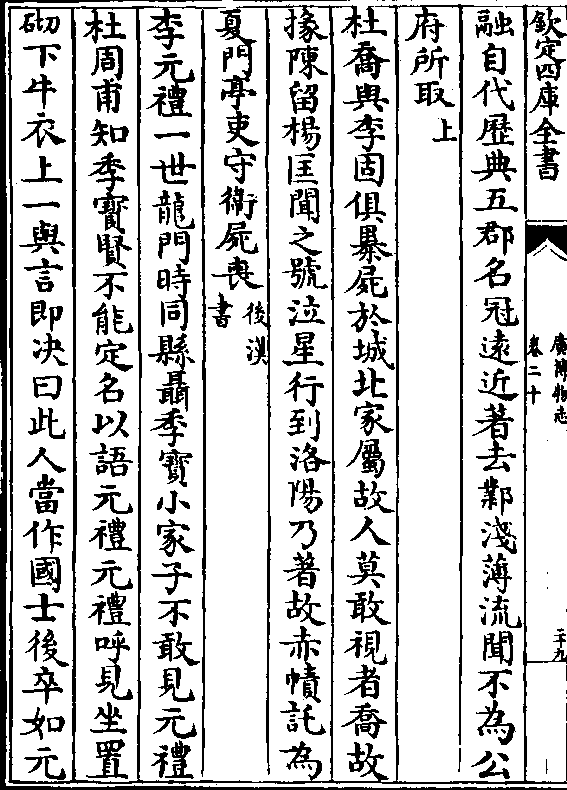 欽定四庫全書
廣博物志
卷二十
二十九
融自代歷典五郡名冠遠近著去鄴淺薄流聞不為公
府所取上
杜喬與李固俱暴屍於城北家屬故人莫敢視者喬故
掾陳留楊匡聞之號泣星行到洛陽乃著故赤幘託為
夏門亭吏守衛屍喪後漢書
李元禮一世龍門時同縣聶季寳小家子不敢見元禮
杜周甫知季寳賢不能定名以語元禮元禮呼見坐置
砌下牛衣上一與言即决曰此人當作國士後卒如元